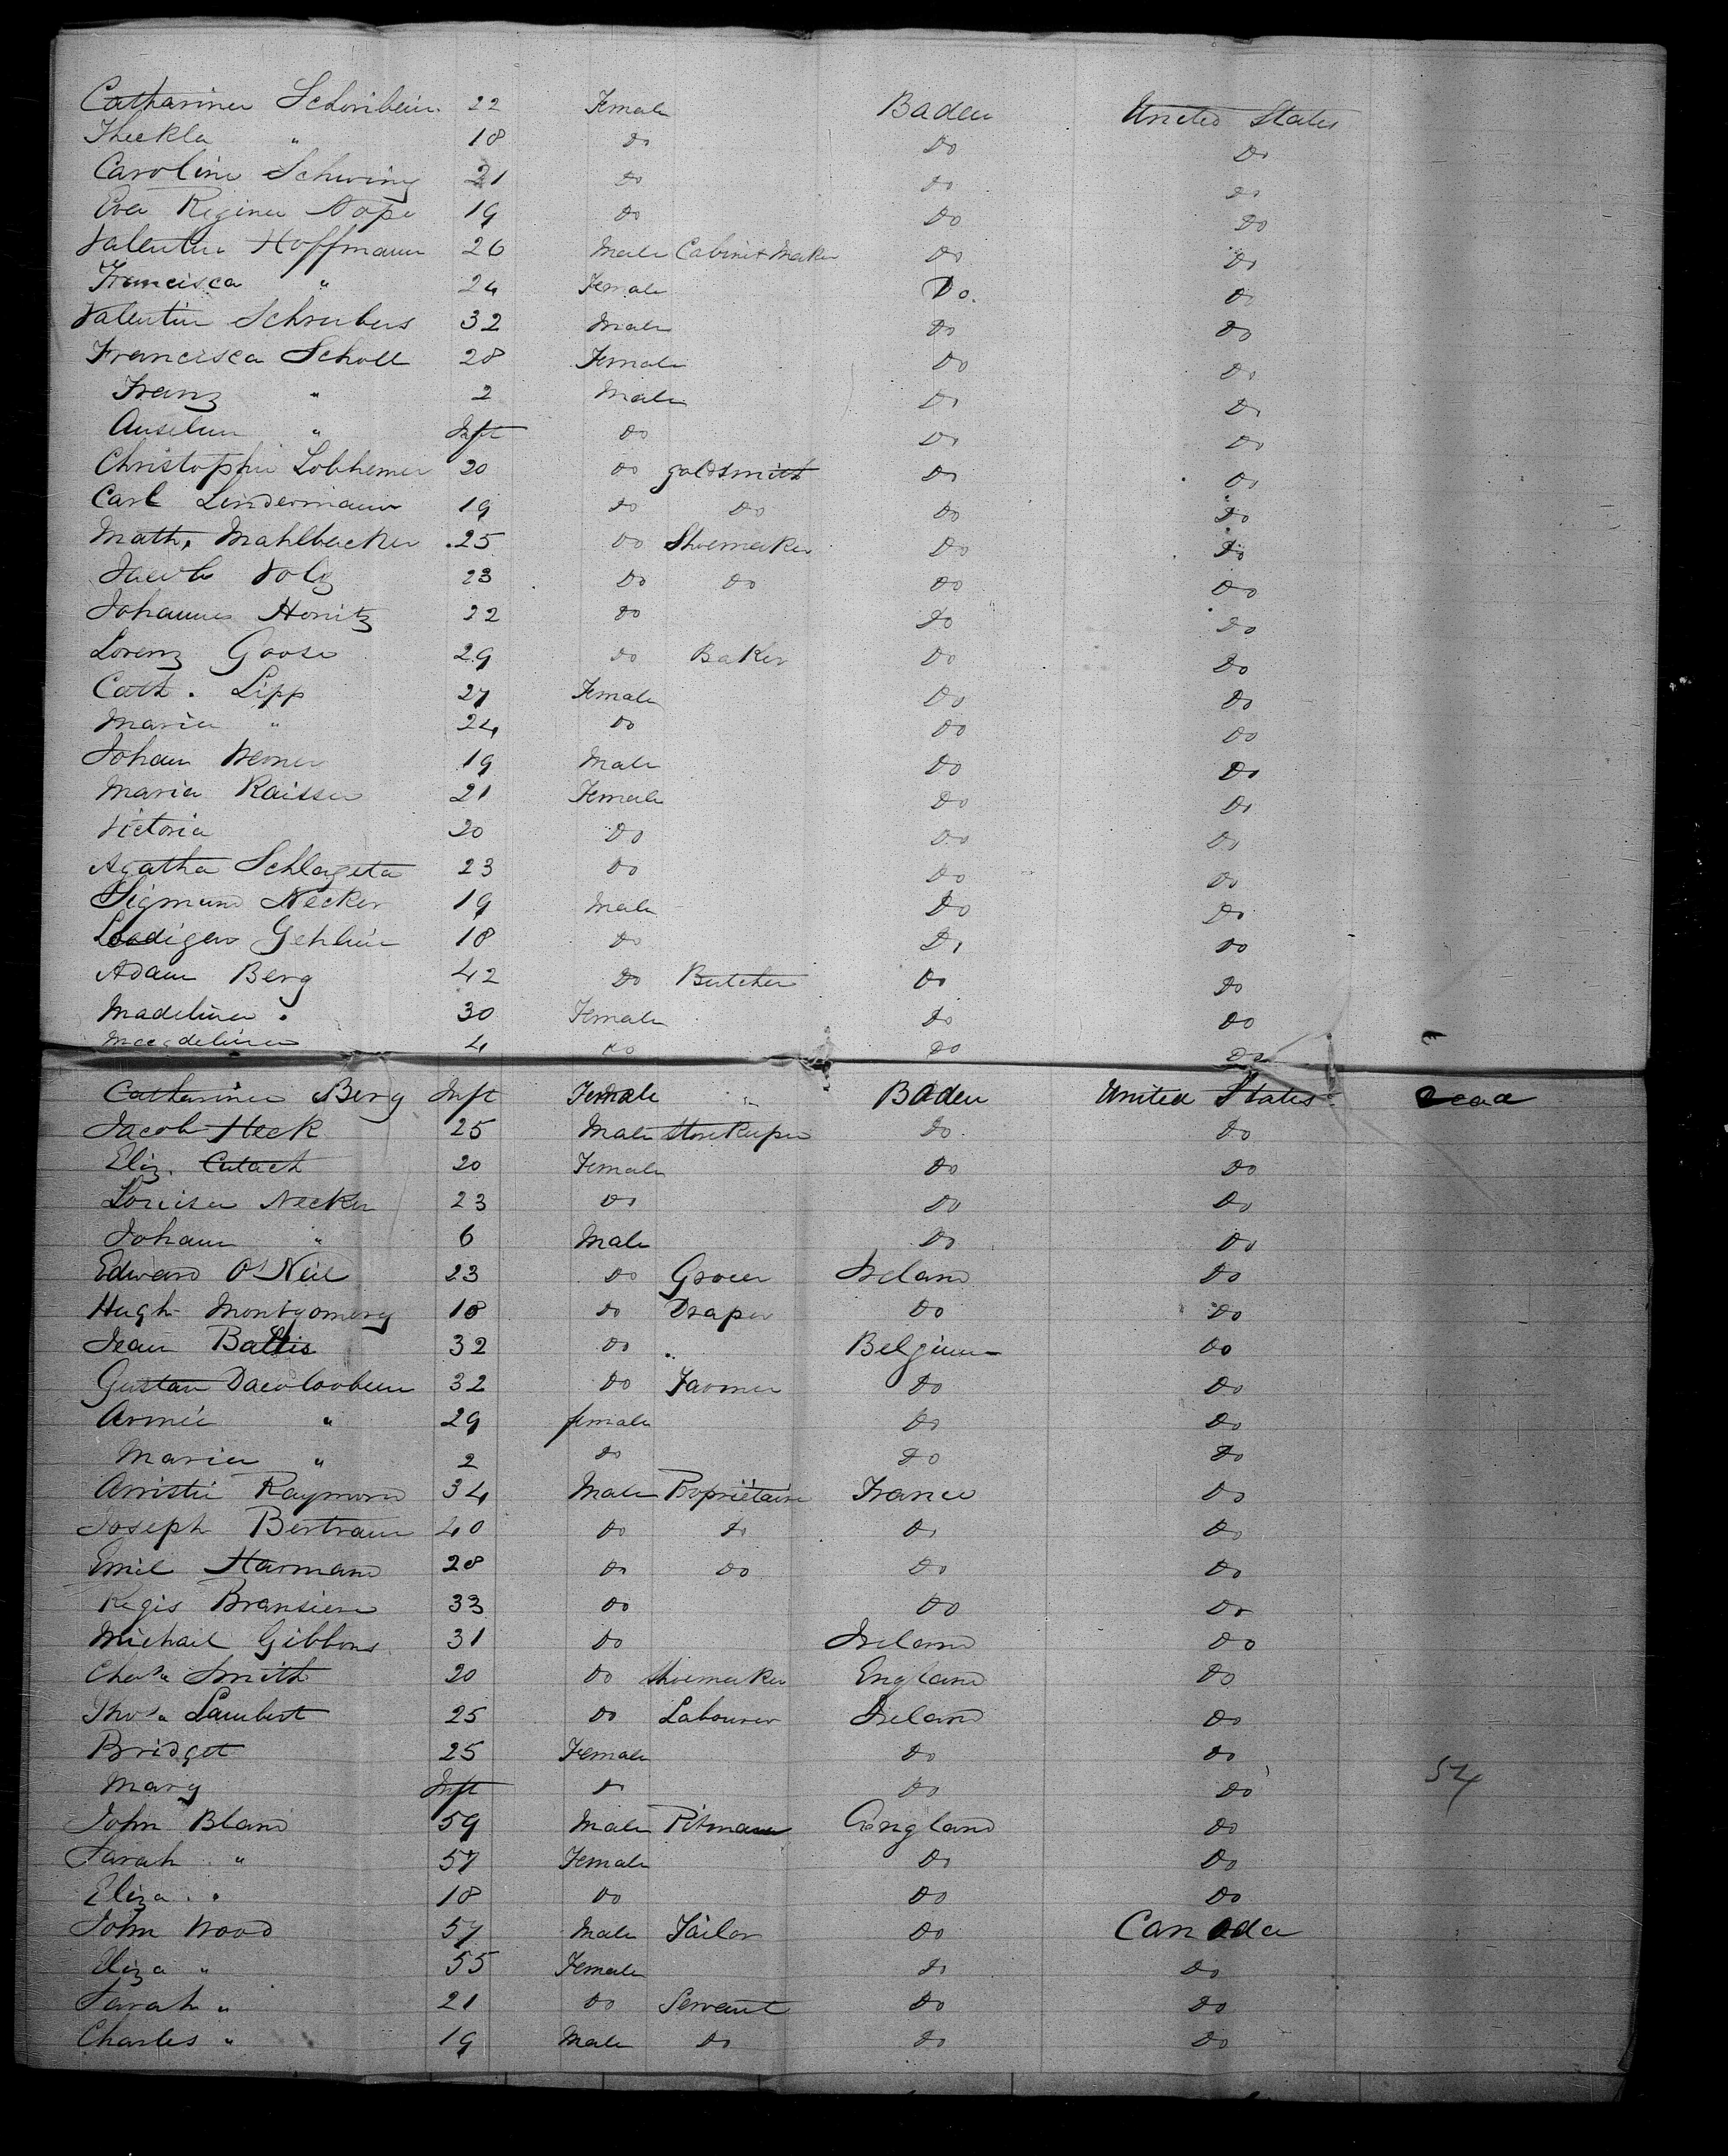 Catharina Schonbein 22 Female Baden United States
Theckla " 18 do Do Do
Caroline Schwing 21 do do do
Eva Regina Nope 19 do Do Do
Valentin Hoffmann 26 Male Cabinet Maker Do Do
Francisca " 24 Female Do. Do
Valentin Schreibers 32 Male Do Do
Francisca Scholl 28 Female Do Do
Franz " 2 Male Do Do
Anselm " Inft do Do Do
Christopher 20 do goldsmith Do Do
Carl Lindermann 19 do do do do
Math. Mahlbacker 25 do Shoemaker Do do
Jacob Volz 23 Do do do do
Johannes Honitz 22 do do do
Lorenz Goose 29 do Baker Do Do
Cath. Lipp 27 Female Do Do
Maria " 24 do do do
Johan Werner 19 Male Do Do
Maria Raisser 21 Female Do Do
Victoria 20 Do Do Do
Agatha Schlageta 23 do do do
Sigmund Necker 19 Male Do Do
18 do Do do
Adam Berg 42 do Butcher Do do
Madelina " 30 Female do do
Magdelina 4 do do do
Catharina Berg Inft Female " Baden United States
Jacob Heck 25 Male Storekeeper do do
Eliz. 20 Female do do
Louisa Necker 23 do do do
Johann " 6 Male Do Do
Edward O'Neil 23 do Grocer Ireland do
Hugh Montgomery 18 do Draper do do
Jean Battis 32 do " Belgium do
Gustav 32 do Farmer do do
" 29 female do do
Maria " 2 do do do
Raymond 34 Male Propriétaire France do
Joseph Bertram 40 do do do do
Emil Harmand 28 do do do do
Regis Bransiere 33 do do do
Michael Gibbons 31 do Ireland do
Chas Smith 20 do Shoemaker England do
Thos Lambert 25 do Labourer Ireland do
Bridget 25 Female do do
Mary Inft do do do 54
John Bland 59 Male Pitman England do
Sarah " 57 Female do do
Eliza " 18 do do do
John Wood 57 Male Tailor do Canada
Eliza " 55 Female do do
Sarah " 21 do Servant do do
Charles " 19 Male do do do